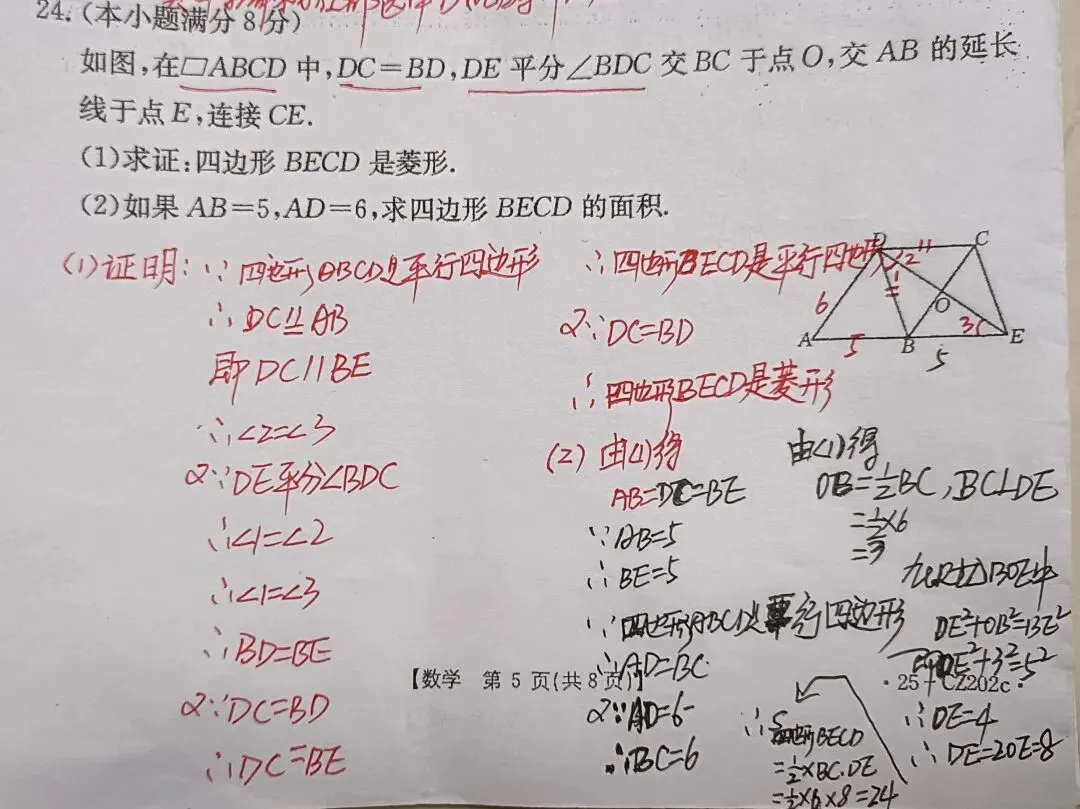 24.(本小题满分8分)
如图,在□ABCD 中,DC=BD,DE 平分∠BDC 交 BC 于点 O,交 AB 的延长
线于点 E,连接 CE.
(1)求证:四边形 BECD 是菱形.
(2)如果 AB=5,AD=6,求四边形 BECD 的面积.
(1)证明:∵四边形ABCD是平行四边形
∴DC∥AB
即DC∥BE
∴∠2=∠3
又∵DE平分∠BDC
∴∠1=∠2
∴∠1=∠3
∴BD=BE
又∵DC=BD
∴DC=BE
∴四边形BECD是平行四边形
又∵DC=BD
∴四边形BECD是菱形
D 2 C
1
6
O
3
A 5 B 5 E
(2) 由(1)得
AB=DC=BE
∵AB=5
∴BE=5
∵四边形ABCD是平行四边形
∴AD=BC
又∵AD=6
∴BC=6
由(1)得
OB=½BC,BC⊥DE
=½×6
=3
在Rt△BOE中
OE²+OB²=BE²
即OE²+3²=5²
∴OE=4
∴DE=2OE=8
∴S四边形BECD
=½×BC·DE
=½×6×8=24
【数学 第 5 页(共 8 页)】
·25-CZ202c·